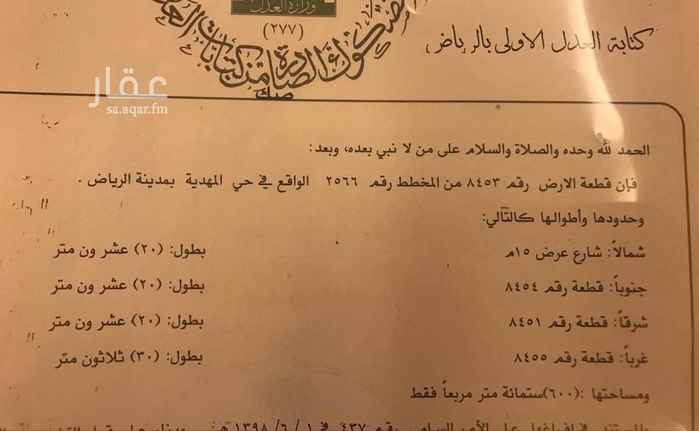 وزارة العدل
(٢٧٧)
كتابة العدل الاولى بالرياض
عقار
sa.aqar.fm
صك
الحمد لله وحده والصلاة والسلام على من لا نبي بعده، وبعد:
فإن قطعة الارض رقم ٨٤٥٣ من المخطط رقم ٢٥٦٦ الواقع في حي المهدية بمدينة الرياض .
وحدودها وأطوالها كالتالي:
شمالاً: شارع عرض ١٥م بطول: (٢٠) عشر ون متر
جنوباً: قطعة رقم ٨٤٥٤ بطول: (٢٠) عشر ون متر
شرقاً: قطعة رقم ٨٤٥١ بطول: (٢٠) عشر ون متر
غرباً: قطعة رقم ٨٤٥٥ بطول: (٣٠) ثلاثون متر
ومساحتها :(٦٠٠)ستمائة متر مربعاً فقط
رقم ٤٣٧ في ١ / ٦ / ١٣٩٨ هـ